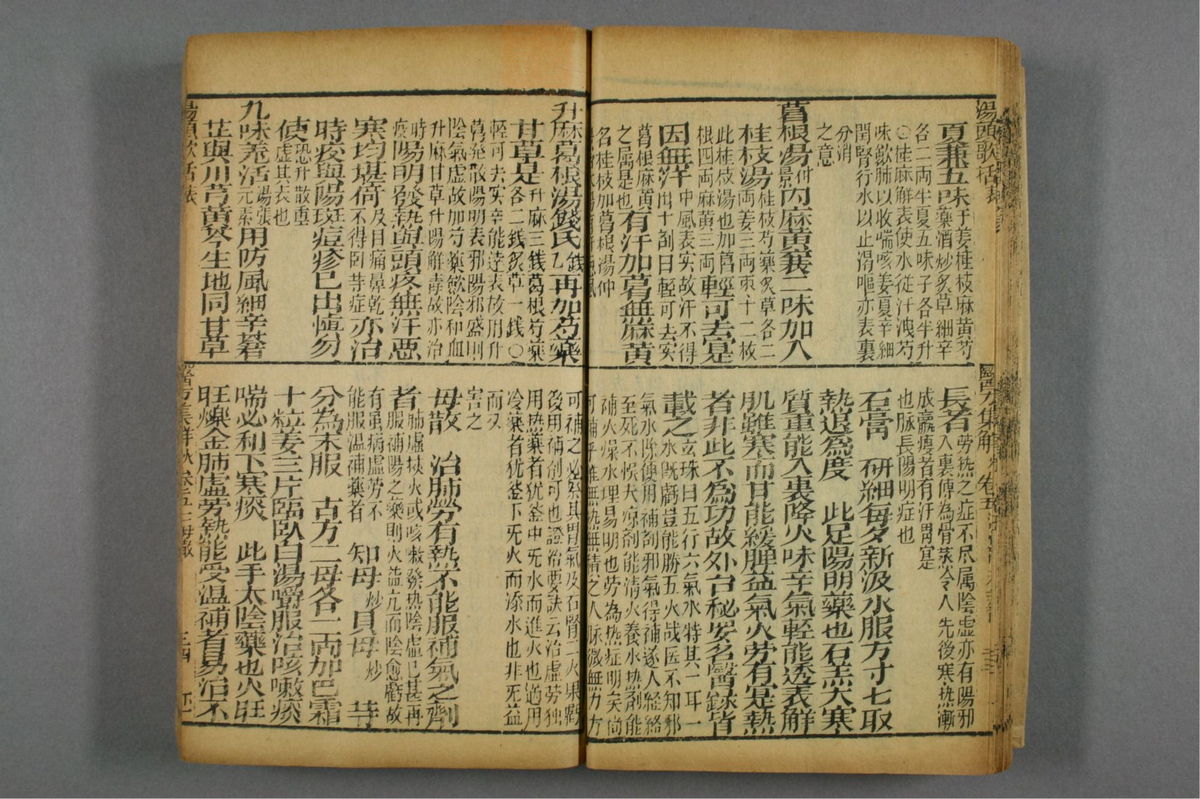 湯頭歌括
夏兼五味干姜桂枝麻黄芍
藥酒炒炙草細辛
各二両半夏五味子各半升
〇桂麻解表使水從汗洩芍
味歛肺以收喘咳姜夏辛細
閏腎行水以止渴嘔亦表裏
分消
之意
葛根湯內麻黄襄二味加入
桂枝湯桂枝芍藥炙草各二
両姜三両枣十二枚
此桂枝湯也加葛
根四両麻黄三両輕可去實
因無汗中風表实故汗不得
出十剤曰輕可去实
葛根麻黄
之属是也有汗加葛無麻黄
名桂枝加葛根湯仲
升麻葛根湯錢氏再加芍藥
甘草是升麻三錢葛根芍藥
各二錢炙草一錢〇
輕可去实辛能達表故用升
葛発散陽明表邪陽邪盛則
陰氣虛故加芍藥歛陰和血
升麻甘草升陽解毒故亦治
時疫陽明發熱與頭疼無汗惡
寒均堪倚及目痛鼻乾
不得卧䓁症亦治
時疫與陽斑痘疹已出慎勿
使恐升散重
虛其表也
九味羌活湯張元素用防風細辛蒼
芷與川芎黄芩生地同甘草
湯頭歌括
醫方集解 卷五
長者勞熱之症不尽属陰虛亦有陽邪
入裏傳為骨蒸令人先後寒熱漸
成羸瘦者有汗胃寔
也脉長陽明症也
石膏 研細每夕新汲水服方寸匕取
熱退為度 此足陽明藥也石羔大寒
質重能入裏降火味辛氣輕能透表解
肌雖寒而甘能緩脾益氣火勞有寔熱
者非此不為功故外台秘要名醫錄皆
載之玄珠曰五行六氣水特其一耳一
水既虧豈能勝五火哉医不知邪
氣水除便用補剤邪氣得補遂入經絡
至死不悮夫凉剤能清火養水熱剤能
補火燥水理易明也劳為熱症明矣尚
可補乎惟無熱無積之人脉微無力方
可補之必察其胃氣及右腎二火果虧
後用補剤可也證治要訣云治虛劳独
用熱藥者犹釜中无水而進火也過用
冷藥者犹釜下无火而添水也非无益
而又
害之
母散 治肺勞有熱不能服補氣之劑
者肺虛挾火或咳嗽發熱陰虛已甚再
服補陽之藥則火益亢而陰愈虧故
有虽病虛劳不
能服温補藥者 知母炒貝母炒 䓁
分為末服 古方二母各一両加巴霜
十粒姜三片臨臥白湯嚼服治咳嗽痰
喘必利下寒痰 此手太陰藥也火旺
旺爍金肺虛劳熱能受温補者易治不
醫方集解 二母散
三四